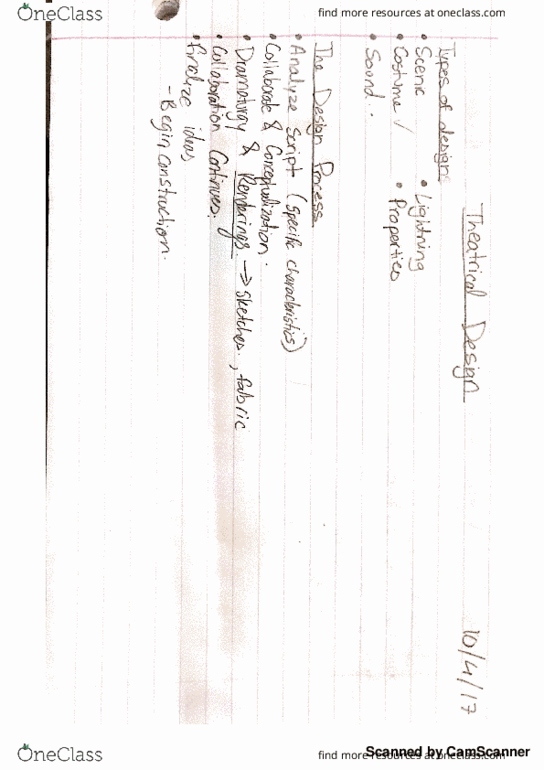 OneClass
find more resources at oneclass.com
Theatrical Design
10/4/17
Types of designs
• Scenic • Lightning
• Costume ✓ • Properties
• Sound..
The Design Process
• Analyze Script (specific characteristics)
• Collaborate & Conceptualization.
• Dramaturgy & Renderings. → sketches., fabric
• Collaboration Continues.
• Finalize ideas
- Begin construction.
OneClass
find more resources at oneclass.com
Scanned by CamScanner